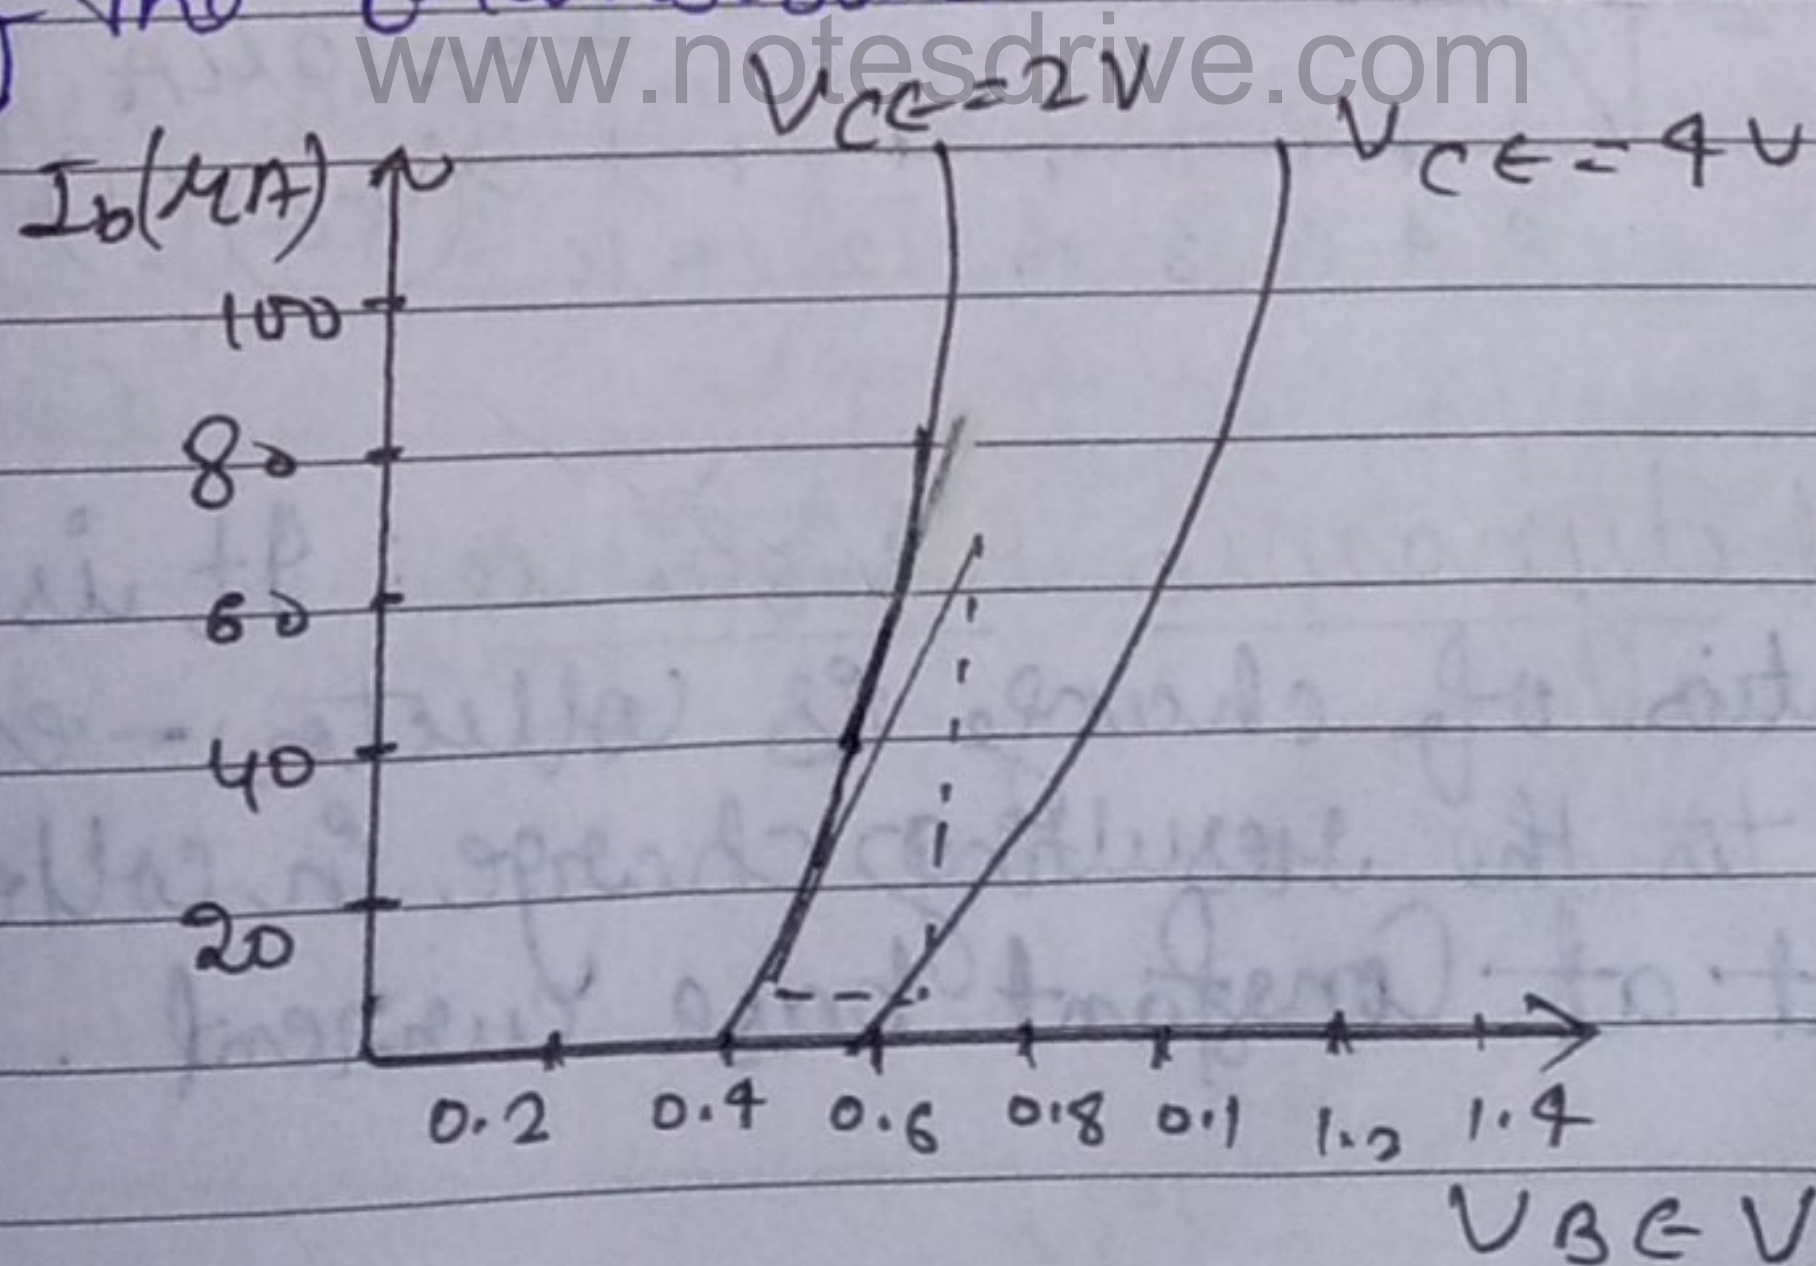 the
www.notesdrive.com
VCE=2V
VCE=4V
Ib(μA)
100
80
60
40
20
0.2 0.4 0.6 0.8 0.1 1.2 1.4
VBE V